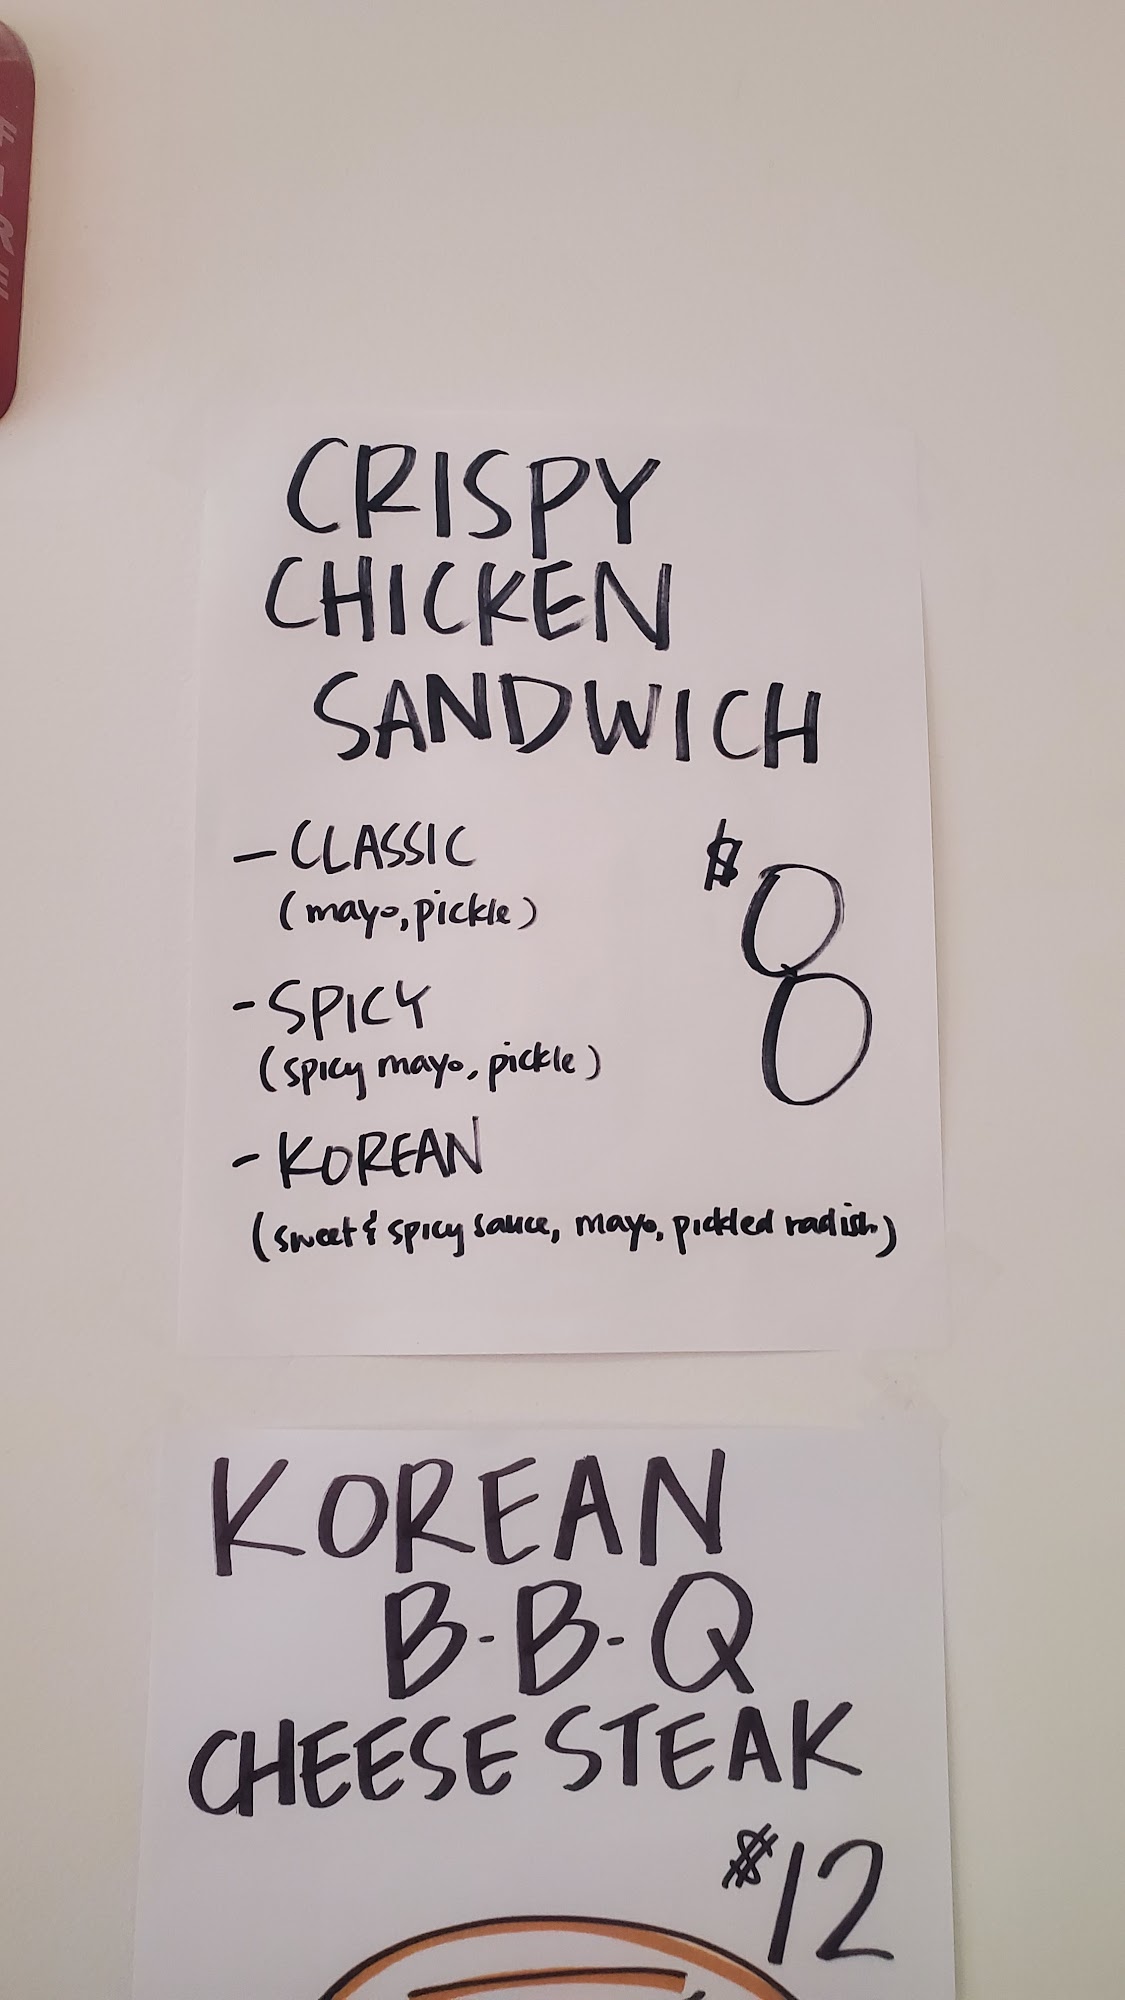 FIRE
CRISPY
CHICKEN
SANDWICH
- CLASSIC
(mayo, pickle)
$8
- SPICY
(spicy mayo, pickle)
- KOREAN
(sweet & spicy sauce, mayo, pickled radish)
KOREAN
B-B-Q
CHEESE STEAK
$12